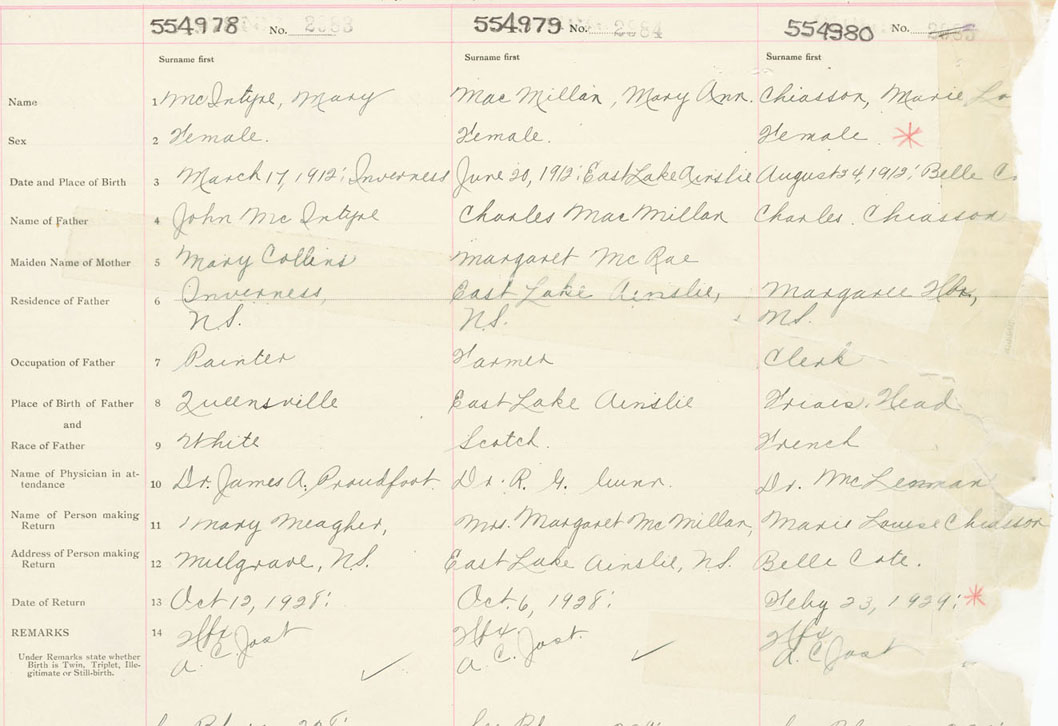 554978 No. 2983 554979 No. 2984 554980 No.
Surname first Surname first Surname first
Name 1 McIntyre, Mary MacMillan, Mary Ann. Chiasson, Marie Lo
Sex 2 Female. Female. Female
Date and Place of Birth 3 March 17, 1912; Inverness June 20, 1912: East Lake Ainslie August 24, 1912; Belle Co
Name of Father 4 John McIntyre Charles MacMillan Charles. Chiasson
Maiden Name of Mother 5 Mary Collins Margaret McRae
Residence of Father 6 Inverness, East Lake Ainslie, Margaree Hbr,
N.S. N.S. N.S.
Occupation of Father 7 Painter Farmer Clerk
Place of Birth of Father 8 Queensville East Lake Ainslie Friars. Head
and
Race of Father 9 White Scotch. French
Name of Physician in at-
tendance 10 Dr. James A. Proudfoot. Dr. R. G. Gunn. Dr. McLennan
Name of Person making
Return 11 Mary Meagher, Mrs. Margaret McMillan, Marie Louise Chiasson
Address of Person making
Return 12 Mulgrave, N.S. East Lake Ainslie, N.S. Belle Cote.
Date of Return 13 Oct 12, 1928: Oct. 6, 1928: Feby 23, 1929:
REMARKS 14 Hfx Hfx Hfx
Under Remarks state whether A. C. Jost A. C. Jost. A. C Jost
Birth is Twin, Triplet, Ille-
gitimate or Still-birth.